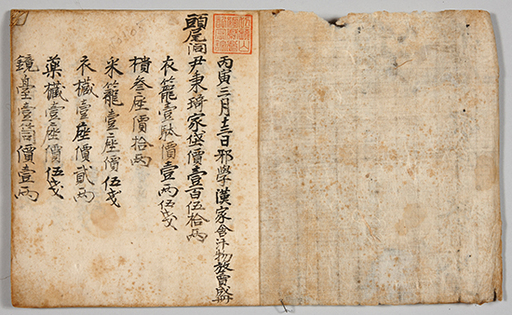 丙寅三月十三日邪學漢家舍汁物放賣醎
頭尾洞尹秉琦家垈價壹百伍拾兩
衣籠壹馱價壹兩伍戔
樻叄座價拾兩
米籠壹座價伍戔
衣欌壹座價貳兩
藥欌壹座價伍戔
鏡臺壹箇價壹兩